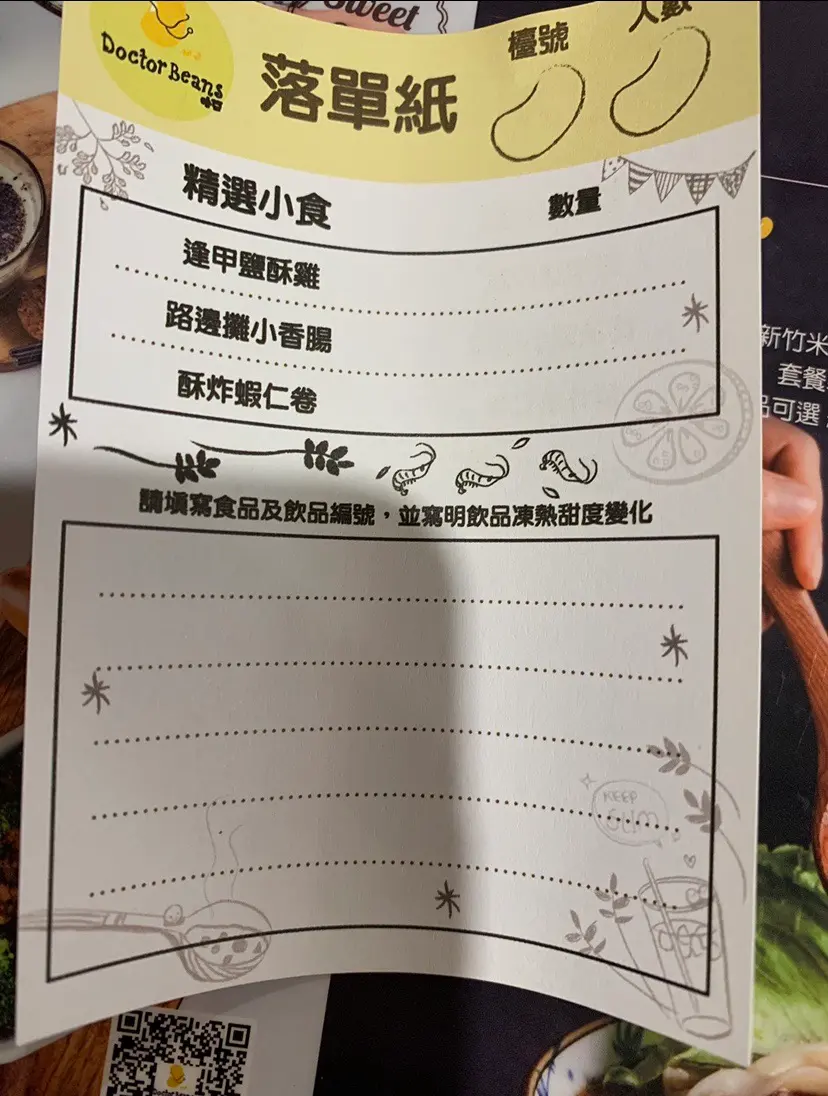 Sweet
Doctor Beans
落單紙
檯號
人數
精選小食
數量
逢甲鹽酥雞
路邊攤小香腸
酥炸蝦仁卷
請填寫食品及飲品編號，並寫明飲品凍熱甜度變化
新竹米
套餐
品可選
KEEP
SLIM